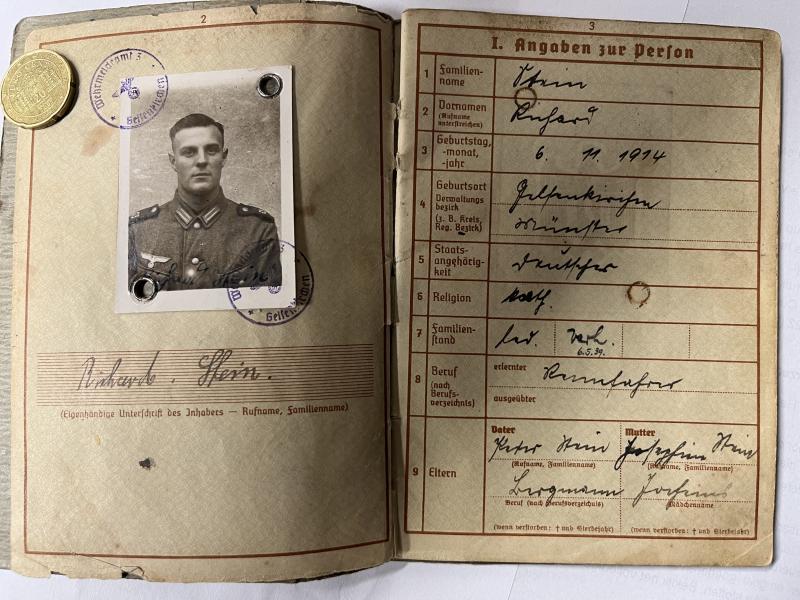 2
Wehrmeldeamt 3
Gelsenkirchen
Gelsenkirchen
Richard. Stein.
(Eigenhändige Unterschrift des Inhabers — Rufname, Familienname)
3
I. Angaben zur Person
1 Familien-
name
Stein
2 Vornamen
(Rufname
unterstreichen)
Richard
3 Geburtstag,
-monat,
-jahr
6. 11. 1914
4 Geburtsort
Verwaltungs-
bezirk
(z. B. Kreis,
Reg. Bezirk)
Gelsenkirchen
Münster
5 Staats-
angehörig-
keit
Deutscher
6 Religion
kath.
7 Familien-
stand
led. verh.
6.5.39.
8 Beruf
(nach
Berufs-
verzeichnis)
erlernter
Rennfahrer
ausgeübter
9 Eltern
Vater Mutter
Peter Stein Josephine Stein
(Rufname, Familienname) (Rufname, Familienname)
Bergmann
Beruf (nach Berufsverzeichnis) Mädchenname
(wenn verstorben: † und Sterbejahr) (wenn verstorben: † und Sterbejahr)